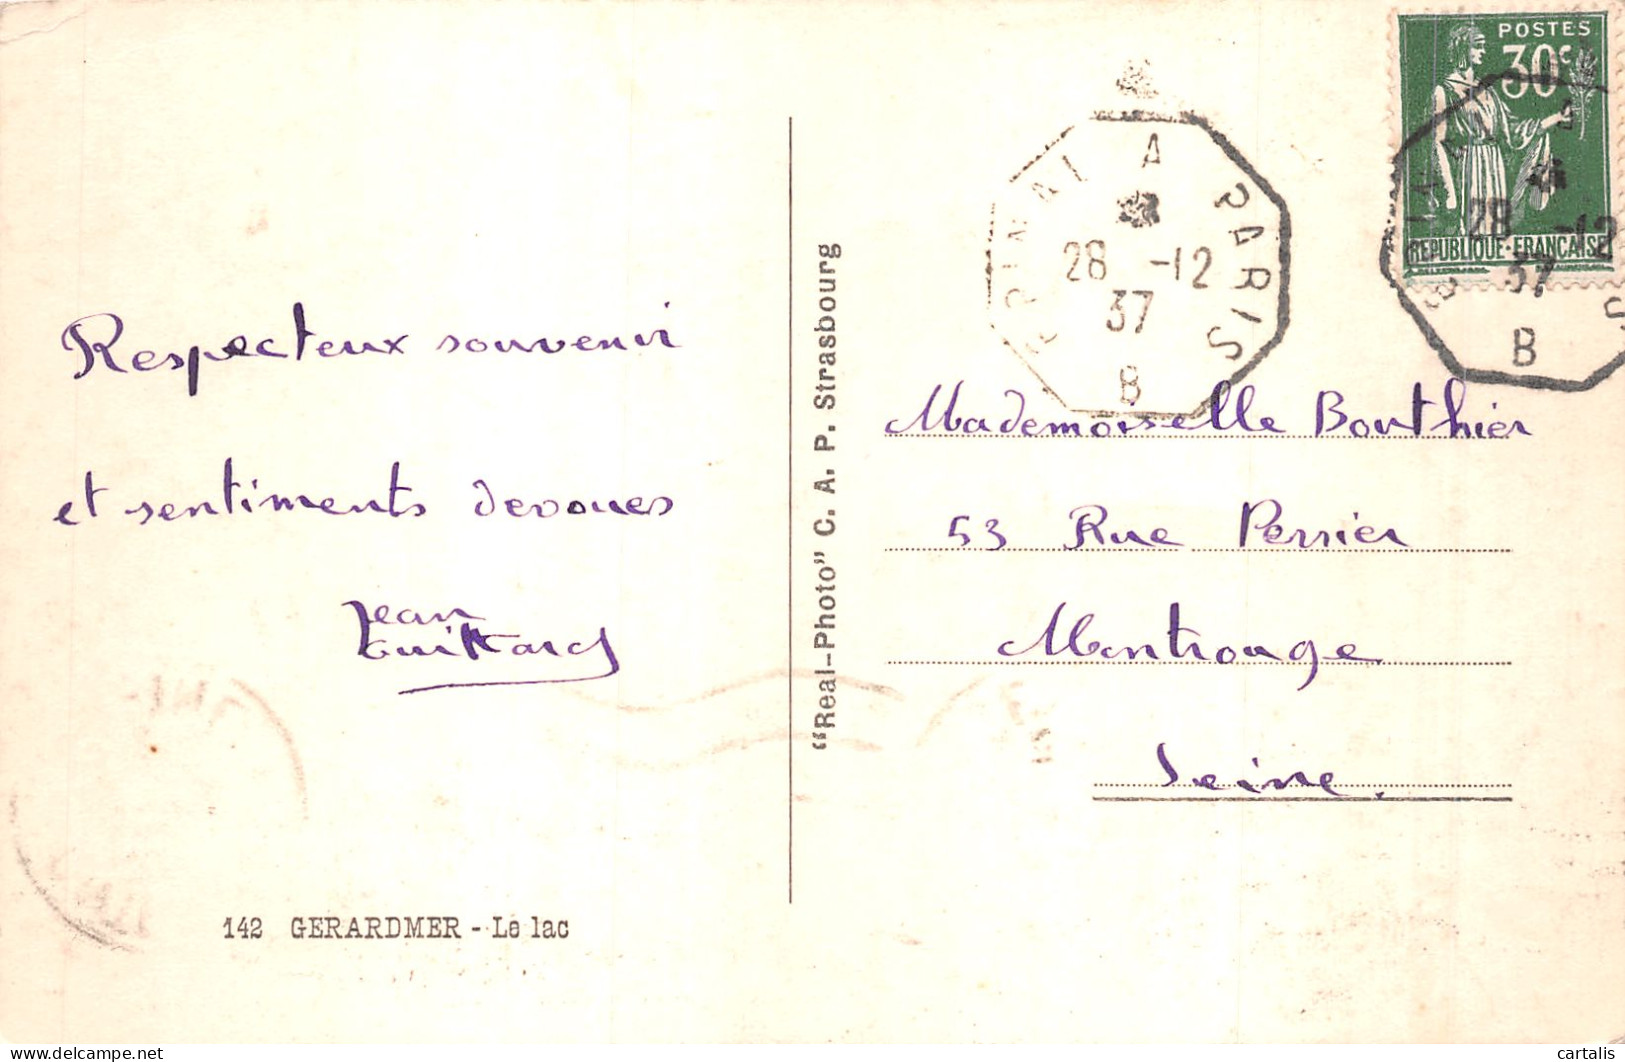 Respecteux souvenir
et sentiments devoues
Jean
142 GERARDMER - Le lac
"Real-Photo" C. A. P. Strasbourg
EPINAL A PARIS
28 -12
37
B
POSTES
30c
REPUBLIQUE·FRANCAISE
28 -12
37
B
Mademoiselle Bouthier
53 Rue Perrier
Montrouge
Seine.
cartalis